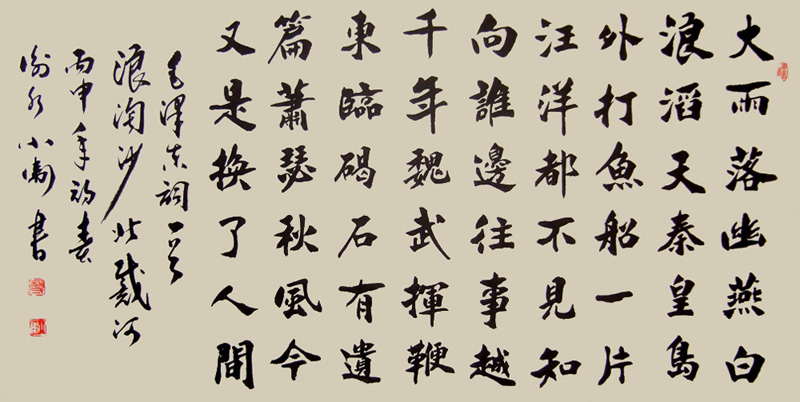 大雨落幽燕白
浪滔天秦皇島
外打魚船一片
汪洋都不見知
向誰邊往事越
千年魏武揮鞭
東臨碣石有遺
篇蕭瑟秋風今
又是換了人間
毛澤东詞一首
浪淘沙北戴河
丙申年初春
水小衛書